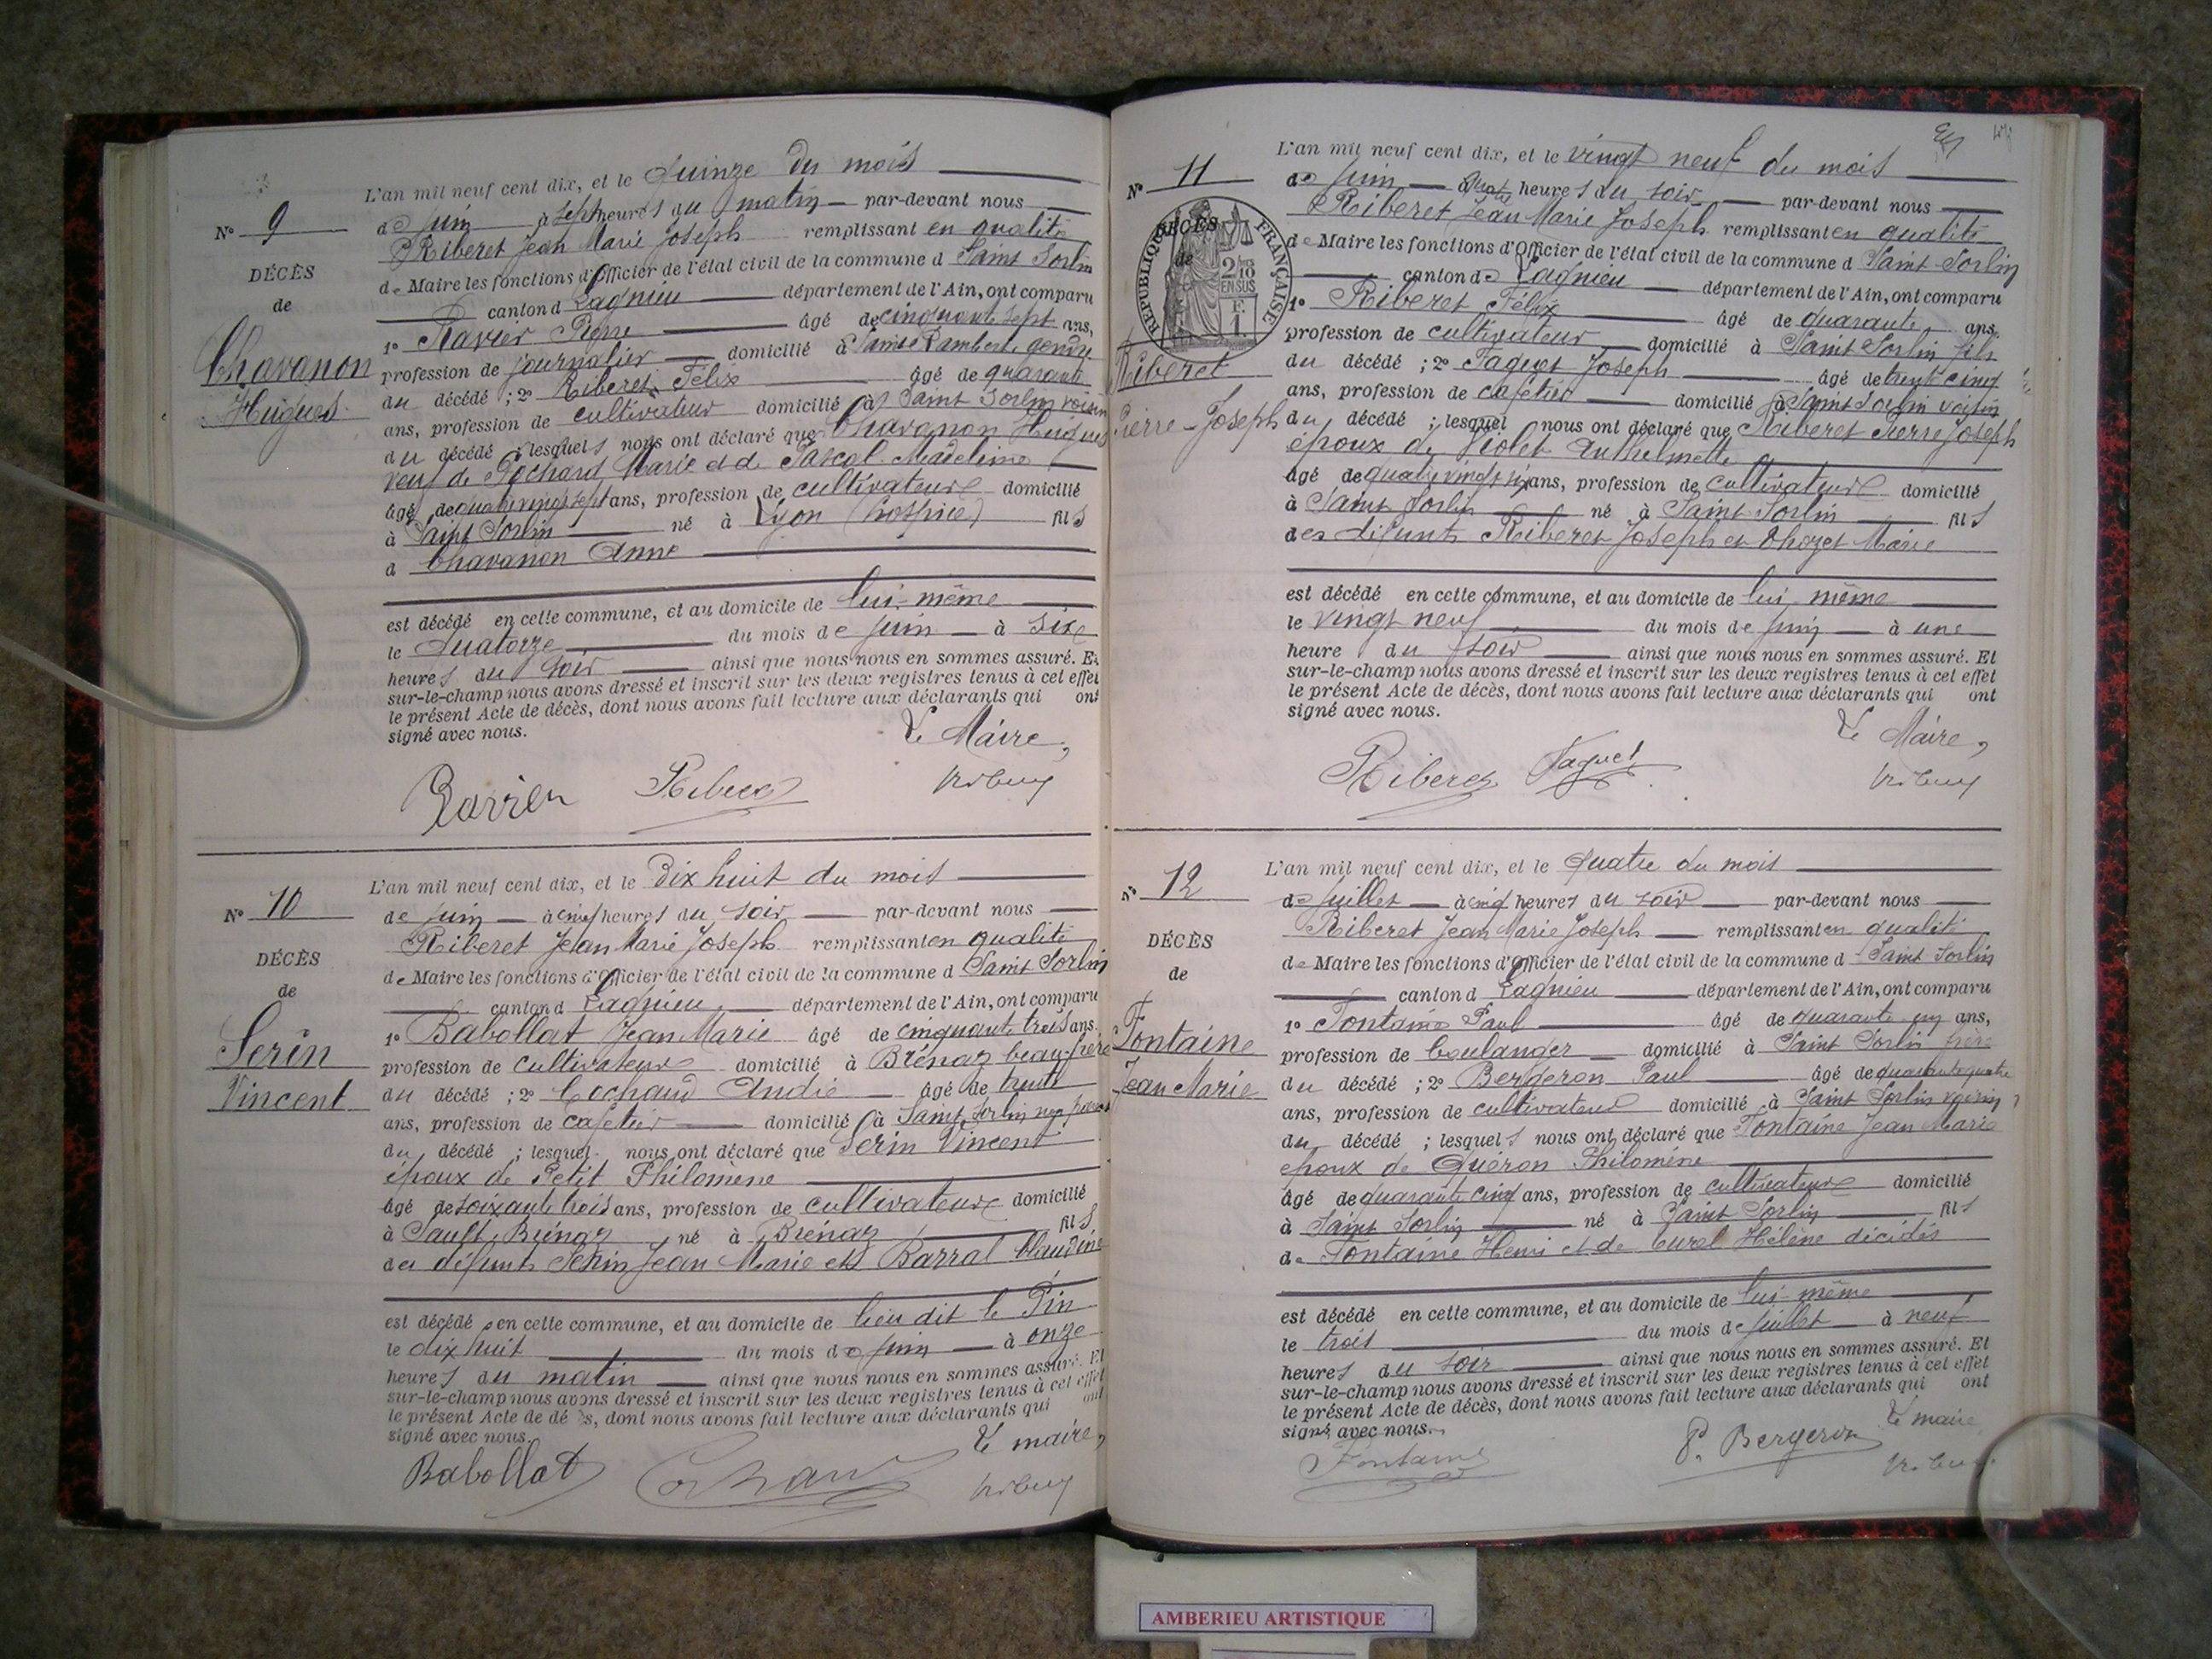 L'an mil neuf cent dix, et le Quinze du mois
Nº 9
de juin à sept heures du matin par-devant nous
Riberet Jean Marie Joseph remplissant en qualité
DÉCÈS
de Maire les fonctions d'Officier de l'état civil de la commune d Saint Sorlin
de
canton d Lagnieu département de l'Ain, ont comparu
1º Ravier Pierre âgé de cinquante sept ans,
Chavanon
profession de journalier domicilié à Saint Rambert, gendre
Hugues
du décédé ; 2º Riberet Félix âgé de quarante
ans, profession de cultivateur domicilié à Saint Sorlin voisin
du décédé ; lesquels nous ont déclaré que Chavanon Hugues
veuf de Pochard Marie et de Pascal Madeleine
âgé de quatre vingt sept ans, profession de cultivateur domicilié
à Saint Sorlin né à Lyon (hospice) fils
d Chavanon Anne
est décédé en cette commune, et au domicile de lui-même
le Quatorze du mois de juin à six
heures du soir ainsi que nous nous en sommes assuré. Et
sur-le-champ nous avons dressé et inscrit sur les deux registres tenus à cet effet
le présent Acte de décès, dont nous avons fait lecture aux déclarants qui ont
signé avec nous.
Le Maire,
Ravier Riberet
L'an mil neuf cent dix, et le Dix huit du mois
Nº 10
de juin à cinq heures du soir par-devant nous
Riberet Jean Marie Joseph remplissant en qualité
DÉCÈS
de Maire les fonctions d'Officier de l'état civil de la commune d Saint Sorlin
de
canton d Lagnieu département de l'Ain, ont comparu
1º Babollat Jean Marie âgé de cinquante trois ans.
Serin
profession de cultivateur domicilié à Brénaz beau-frère
Vincent
du décédé ; 2º Cochaud André âgé de trente
ans, profession de cafetier domicilié à Saint Sorlin non parent
du décédé ; lesquel nous ont déclaré que Serin Vincent
époux de Petit Philomène
âgé de soixante trois ans, profession de cultivateur domicilié
à Sault-Brénaz né à Brénaz fils
des défunts Serin Jean Marie et Barral Claudine
est décédé en cette commune, et au domicile de lieu dit le Pin
le dix huit du mois de juin à onze
heures du matin ainsi que nous nous en sommes assuré. Et
sur-le-champ nous avons dressé et inscrit sur les deux registres tenus à cet effet
le présent Acte de décès, dont nous avons fait lecture aux déclarants qui ont
signé avec nous.
Le maire,
Babollat Cochaud
L'an mil neuf cent dix, et le vingt neuf du mois
Nº 11
de juin à quat heures du soir par-devant nous
Riberet Jean Marie Joseph remplissant en qualité
DÉCÈS
de
RÉPUBLIQUE FRANÇAISE
2/10 EN SUS
F. 1
de Maire les fonctions d'Officier de l'état civil de la commune d Saint-Sorlin
canton de Lagnieu département de l'Ain, ont comparu
1º Riberet Félix âgé de quarante ans,
profession de cultivateur domicilié à Saint Sorlin fils
Riberet
du décédé ; 2º Jaquet Joseph âgé de trente cinq
ans, profession de cafetier domicilié à Saint Sorlin voisin
Pierre-Joseph
du décédé ; lesquel nous ont déclaré que Riberet Pierre Joseph
époux de Violet Anthelmette
âgé de quatre vingt six ans, profession de cultivateur domicilié
à Saint Sorlin né à Saint Sorlin fils
des défunts Riberet Joseph et Chozet Marie
est décédé en cette commune, et au domicile de lui-même
le vingt neuf du mois de juin à une
heure du soir ainsi que nous nous en sommes assuré. Et
sur-le-champ nous avons dressé et inscrit sur les deux registres tenus à cet effet
le présent Acte de décès, dont nous avons fait lecture aux déclarants qui ont
signé avec nous.
Le Maire,
Riberet Jaquet
L'an mil neuf cent dix, et le Quatre du mois
Nº 12
de juillet à cinq heures du soir par-devant nous
Riberet Jean Marie Joseph remplissant en qualité
DÉCÈS
de Maire les fonctions d'Officier de l'état civil de la commune d Saint Sorlin
de
canton d Lagnieu département de l'Ain, ont comparu
1º Fontaine Paul âgé de quarante un ans,
Fontaine
profession de boulanger domicilié à Saint Sorlin frère
Jean Marie
du décédé ; 2º Bergeron Paul âgé de quarante quatre
ans, profession de cultivateur domicilié à Saint Sorlin voisin
du décédé ; lesquels nous ont déclaré que Fontaine Jean Marie
époux de Quéron Philomène
âgé de quarante cinq ans, profession de cultivateur domicilié
à Saint Sorlin né à Saint Sorlin fils
de Fontaine Henri et de Curel Hélène décédés
est décédé en cette commune, et au domicile de lui-même
le trois du mois de juillet à neuf
heures du soir ainsi que nous nous en sommes assuré. Et
sur-le-champ nous avons dressé et inscrit sur les deux registres tenus à cet effet
le présent Acte de décès, dont nous avons fait lecture aux déclarants qui ont
signé avec nous.
Le maire
Fontaine P. Bergeron
AMBERIEU ARTISTIQUE